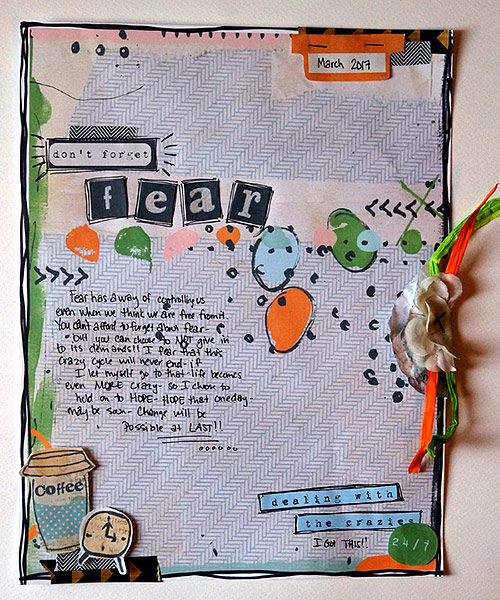 March 2017
don't forget
fear
Fear has a way of controlling us
even when we think we are free from it.
You can't afford to forget about fear-
but you can choose to NOT give in
to its demands!! I fear that this
crazy cycle will never end- if
I let myself go to that-life becomes
even MORE crazy- so I choose to
hold on to HOPE- HOPE that one day-
maybe soon- change will be
possible at LAST!!
Coffee
dealing with
the crazies
I GOT THIS!!
24/7